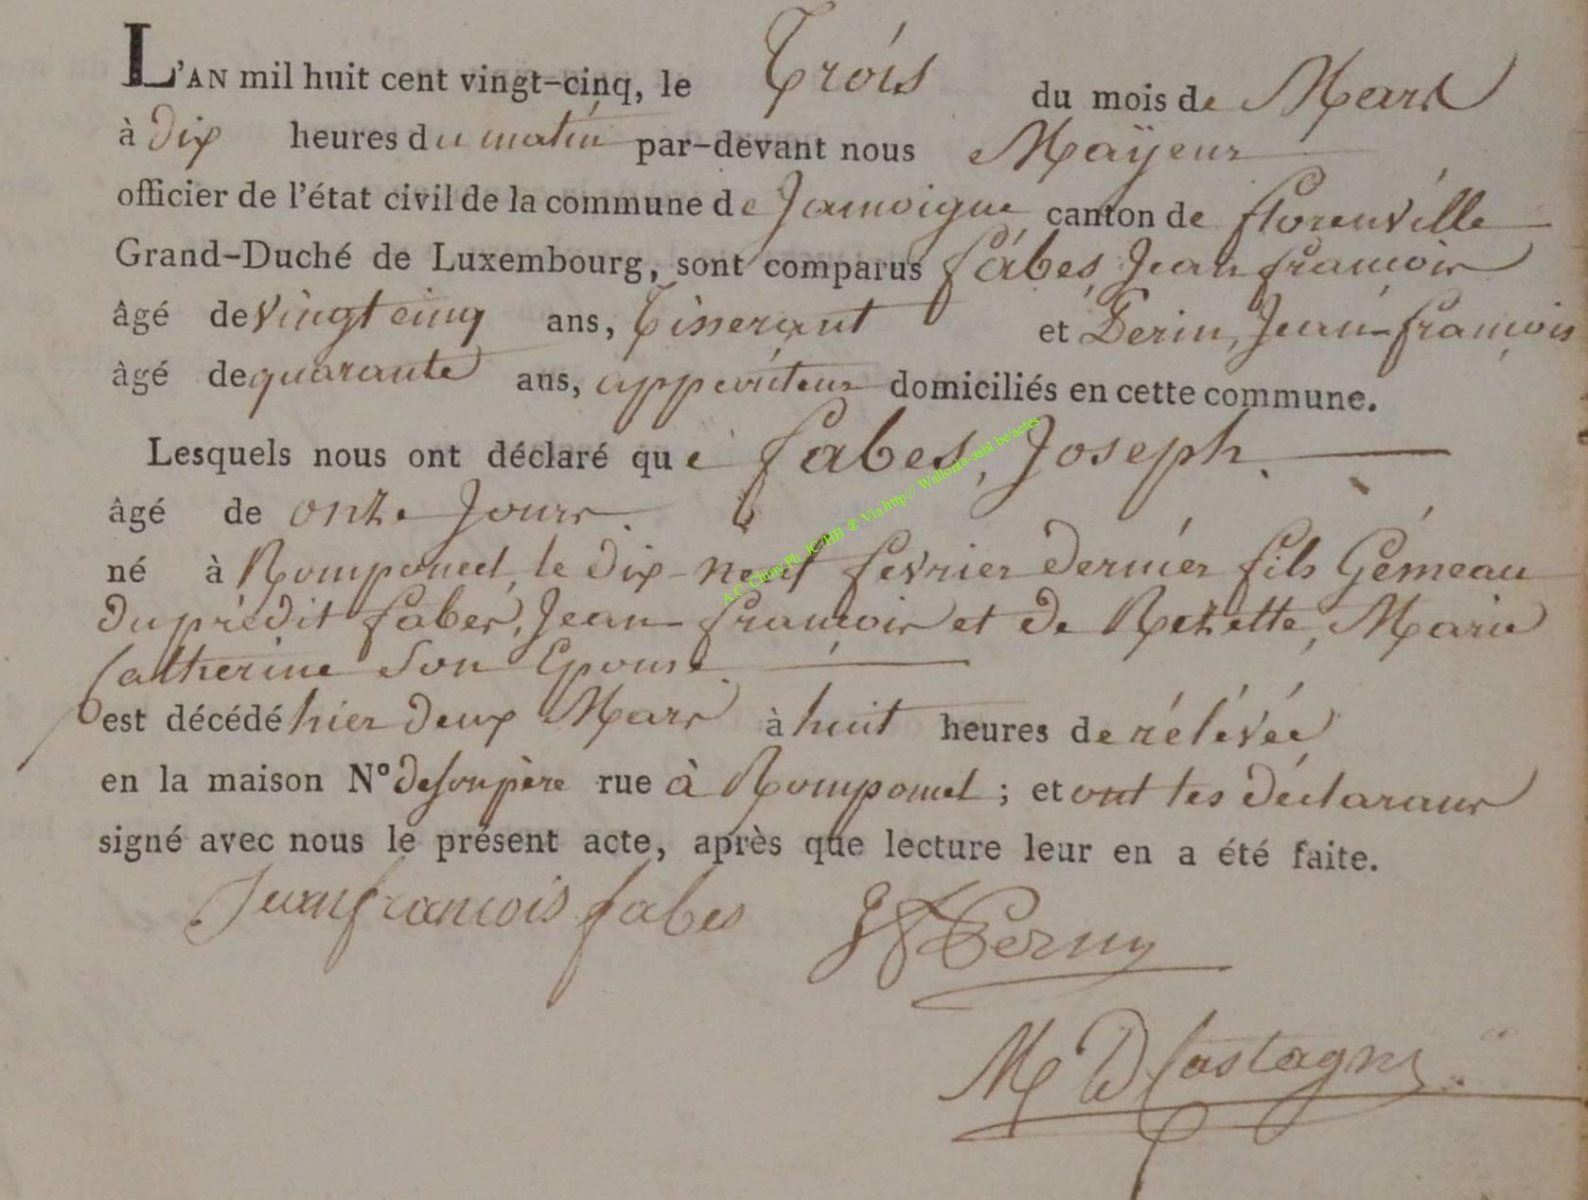 L'AN mil huit cent vingt-cinq, le Trois du mois de Mars
à Dix heures du matin par-devant nous Mayeur
officier de l'état civil de la commune de Jamoigne canton de florenville
Grand-Duché de Luxembourg, sont comparus fabes, Jean françois
âgé de vingt cinq ans, Tisserant et Perin, Jean-françois
âgé de quarante ans, domiciliés en cette commune.
Lesquels nous ont déclaré que fabes, Joseph.
âgé de onze Jours.
né à Romponcel, le Dix-neuf fevrier dernier fils Gémeau
Du prédit fabes, Jean-françois et de Rezette, Marie
Catherine Son Epouse.
est décédé hier deux Mars à huit heures de rélévée
en la maison N° de son père rue à Romponcel ; et ont les déclarans
signé avec nous le présent acte, après que lecture leur en a été faite.
Jean francois fabes JF Perin
M D Castagne
A.C. Chiny Ph. JC-HB ® Via http:// Wallonia-asbl.be/actes